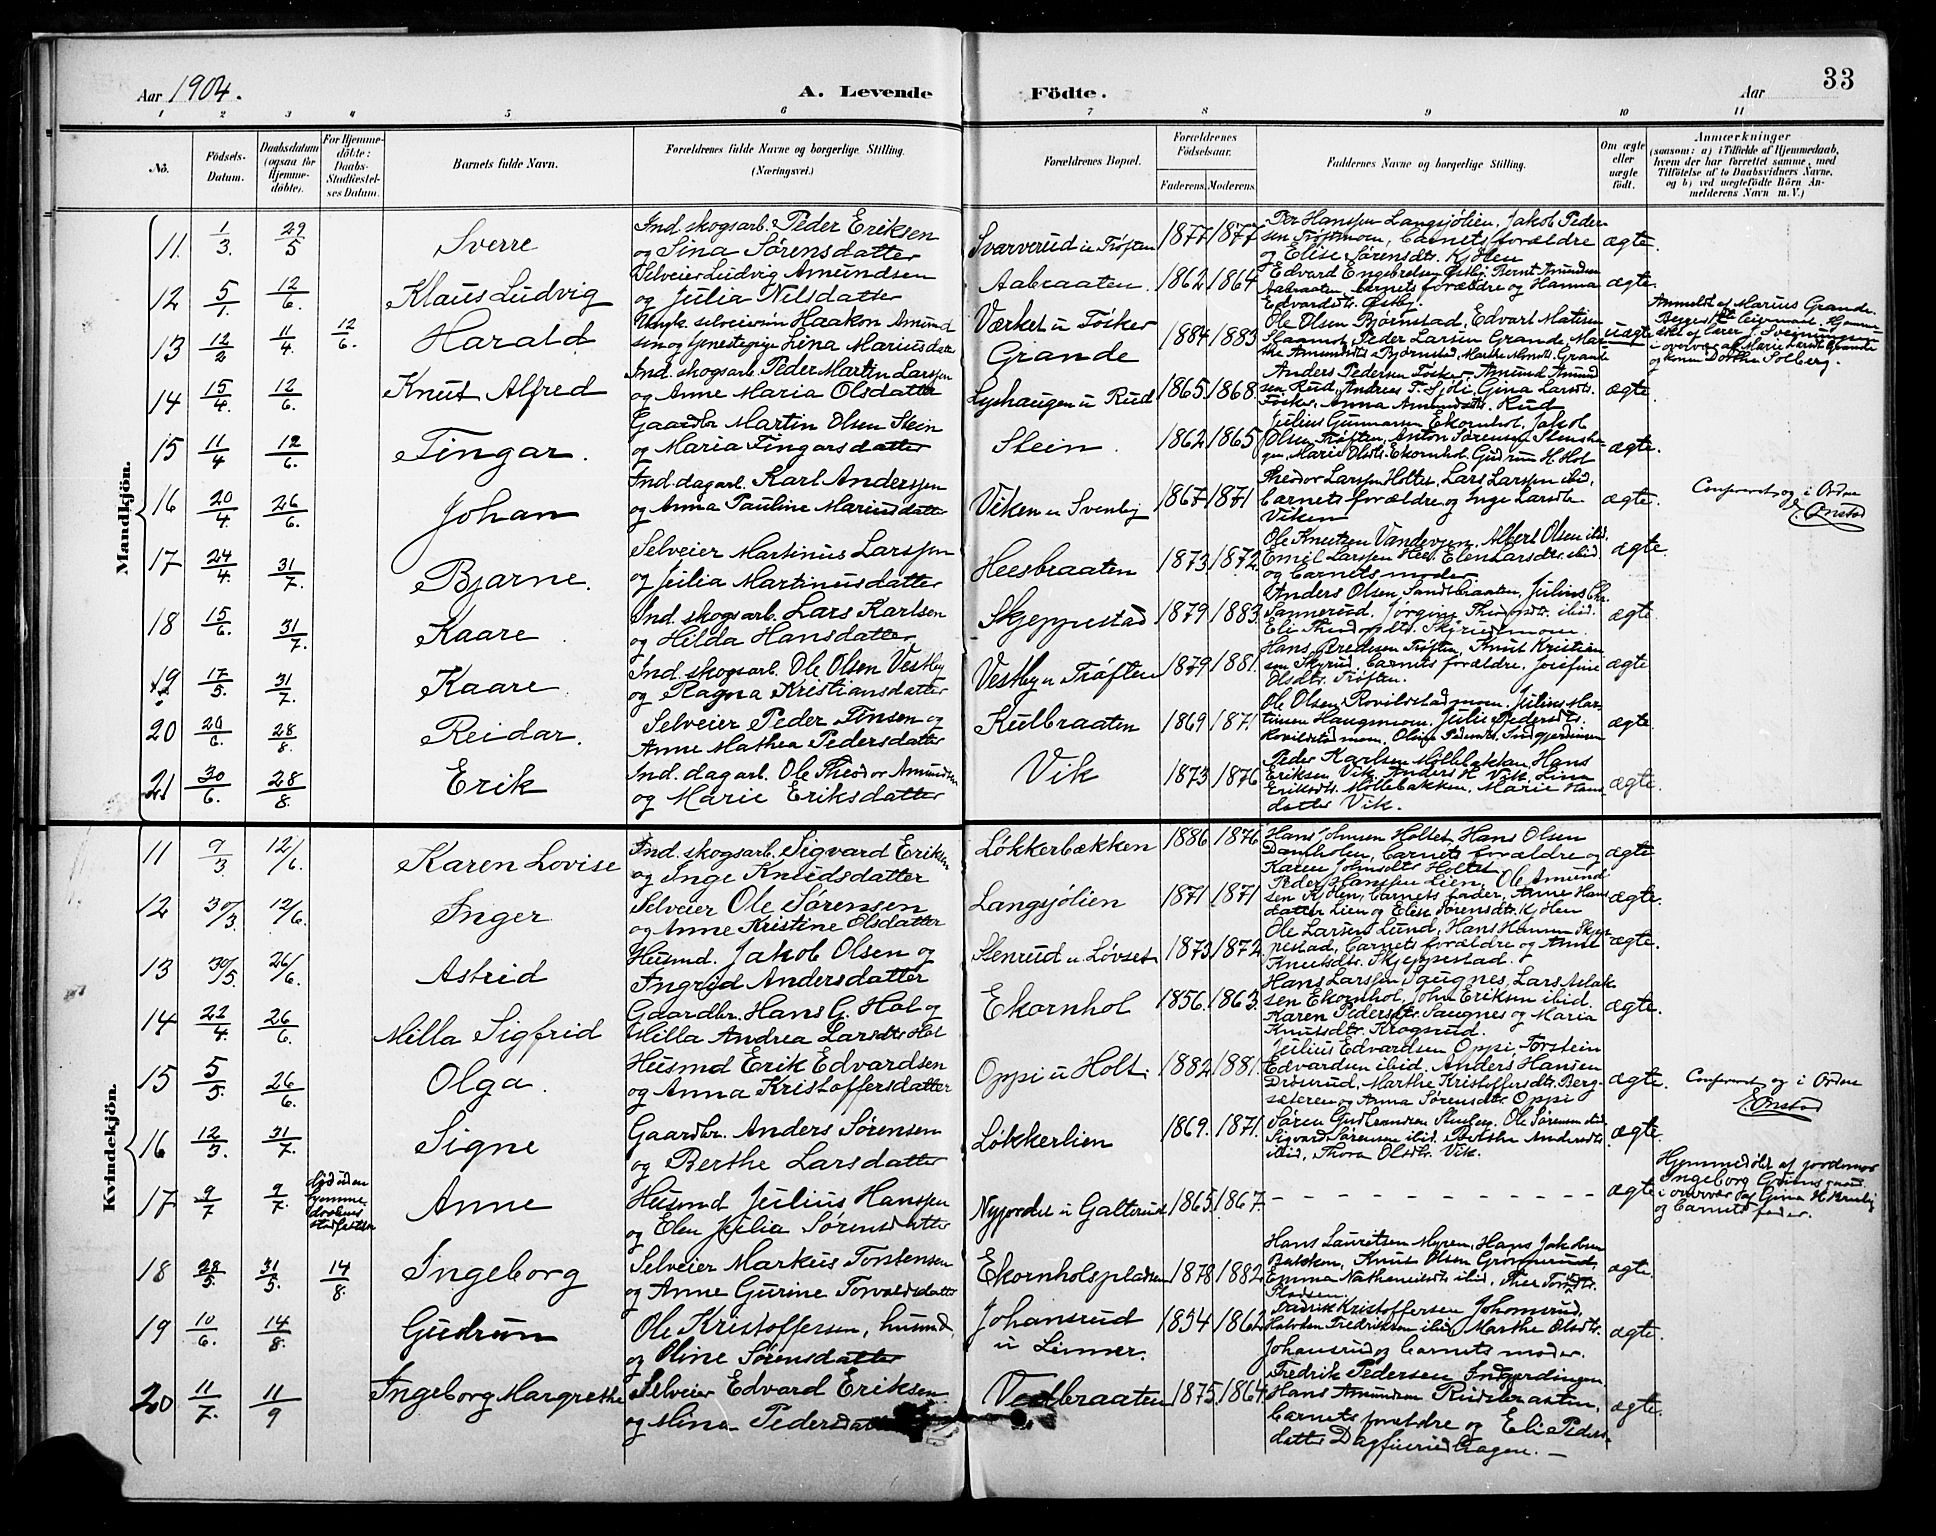 Aar 1904.
A. Levende Födte.
Aar
33
1 2 3 4 5 6 7 8 9 10 11
No.
Födsels-Datum.
Daabsdatum (ogsaa för Hjemmedöbte).
For Hjemmedöbte: Daabs-Stadfæstelses Datum.
Barnets fulde Navn.
Forældrenes fulde Navne og borgerlige Stilling. (Næringsvei.)
Forældrenes Bopæl.
Forældrenes Födselsaar.
Faderens. Moderens.
Faddernes Navne og borgerlige Stilling.
Om ægte eller uægte födt.
Anmærkninger
(saasom: a) i Tilfælde af Hjemmedaab, hvem der har forrettet samme, med Tilföielse af to Daabsvidners Navne, og b) ved uægtefödte Börn Anmelderens Navn m. V.)
Mandkjön.
11. 1/3. 29/5 Sverre
Ind. skogsarb. Peder Eriksen
og Sina Sørensdatter
Svarverud u Trøften 1877 1877
Per Hanssen Langsjølien, Jakob Peder-
sen Trøftmoen, barnets forældre
og Elise Sørensdt. Kjølen
ægte.
12 5/1. 12/6. Klaus Ludvig
Selveier Ludvig Amundsen
og Julia Nilsdatter
Aabraaten. 1862 1864
Edvard Engebretsen Østby, Bernt Amundsen
Aabraaten, barnets forældre og Hanna
Edvardsdt. Østby.
ægte.
13 12/2 11/4. 12/6. Harald
Ungk. selveiersøn Haakon Amund
sen og tjenestepige Lina Mariusdatter
Værket u Tösker
Grande 1884 1883
Ole Olsen Bjørnstad, Edvart Matisen
Peder Larsen Grande, Mar-
the Amundsdt. Bjørnstad, Marthe Grande
uægte
Anmeldt af Marius Grande.
14 15/4. 12/6. Knut Alfred
Ind. skogsarb. Peder Martin Larssen
og Anne Maria Olsdatter
Lyshaugen u Rud 1865. 1868.
Anders Pedersen Tösker, Amund Amund
sen Rud, Andreas T. Sjøli, Gina Larsdt.
Tösker, Anna Amundsdt. Rud
ægte.
15 11/4 12/6. Tingar.
Gaardbr Martin Olsen Stein
og Maria Tingarsdatter
Stein. 1862 1865
Julius Gunnarsen Ekornhol, Jakob
Olsen Trøften, Anton Sørensen Stensha-
gen, Marie Olsdt. Ekornhol, Gudrun H. Hol
ægte.
16 20/4 26/6. Johan
Ind. dagarb. Karl Anderssen
og Anna Pauline Mariusdatter
Viken u Svenby 1867 1871
Theodor Larssen Holtet, Lars Larsen ibid,
barnets forældre og Inge Larsdtr
Viken
ægte.
Confereret og i Orden
E. Onstad
17 24/4. 31/7 Bjarne.
Selveier Martinus Larssen
og Julia Martinusdatter
Heesbraaten 1873 1872.
Ole Knutsen Vandevjen, Albert Olsen ibid,
Emil Larssen Hee, Elen Larsdt. ibid
og barnets moder
ægte.
18 15/6. 31/7. Kaare
Ind. skogsarb. Lars Karlsen
og Hilda Hansdatter
Skjeppestad 1879 1883.
Anders Olsen Sandbraaten, Julius Chr.
Sannerud, Jørgine ibid.
Eli
ægte.
19 17/5. 31/7. Kaare
Ind. skogsarb. Ole Olsen Vestby
og Ragna Kristiansdatter
Vestby u Trøften 1879 1881.
Hans Bredesen Trøften, Knut Kristian-
sen Skyrud, barnets forældre, Josefine
Olsdts. Trøften.
ægte
20 20/6. 28/8. Reidar.
Selveier Peder Jensen og
Anne Mathea Pedersdatter
Kulbraaten 1869 1871.
Ole Olsen Rovildstadmoen, Julius Mar-
tinsen Haugsmoen, Julie Pedersdts.
Rovildstadmoen, Oline Pedersdt. Indgjerdingen
ægte.
21 30/6. 28/8. Erik
Ind. dagarb. Ole Theodor Amundsen
og Marie Eriksdatter
Vik 1873 1876
Peder Karlsen Møllebakken, Hans
Eriksen Vik, Anders H. Vik, Lina
Eriksdt. Møllebakken, Marie Hans
datter Vik.
ægte.
Kvindekjön.
11 9/3 12/6. Karen Lovise
Ind. skogsarb. Sigvard Eriksen
og Inge Knudsdatter
Løkkerbækken 1886 1876
Hans Johnsen Holtet, Hans Olsen
Damholen, barnets forældre og
Karen Johnsdt. Holtet
ægte
12 30/3. 12/6. Inger
Selveier Ole Sørensen
og Anne Kristine Elsdatter
Langsjølien 1871 1871
Peder Hanssen Lien, Ole Amund-
sen Kjølen, barnets fader, Anne Hans
datter Lien og Elise Sørensdt. Kjölen
ægte.
13 30/5. 26/6. Astrid
Husmd. Jakob Olsen og
Ingrid Andersdatter
Stenrud u. Løvset 1873 1872.
Ole Larsen Lund, Hans Hansen Skjep-
pestad, barnets forældre og Anne
Knutsdt. Skjeppestad.
ægte.
14 22/4. 26/6. Milla Sigfrid
Gaardbr. Hans G. Hol og
Milla Andrea Larsdt. Hol
Ekornhol 1856. 1863.
Hans Larssen Saugnes, Lars Aslak-
sen Ekornhol, John Eriksen ibid.
Karen Pedersdt. Saugnes og Maria
Knutsdts. Krogsrud.
ægte.
15 5/5. 26/6. Olga.
Husmd Erik Edvardsen
og Anna Kristoffersdatter
Oppi u Holt 1882 1881.
Julius Edvardsen Oppi, Torstein
Edvardsen ibid. Anders Hansen
Drøsrud, Marthe Kristoffersdt. Berg-
sæteren og Anna Sørensdt. Oppi
ægte.
Confereret og i Orden
E. Onstad
16 12/3. 31/7. Signe
Gaardbr. Anders Sørensen
og Berthe Larsdatter
Løkkerlien 1869. 1871.
Søren Gudbrandsen Stenberg, Ole Sørensen ibid
Sigvard Sørensen ibid. Berthe Andersdt.
ibid, Thora Olsdt. Vik.
ægte.
17 9/7 9/7. Död uden
hjemme-
daabens
stadfæstelse
Anne
Husmd Julius Hanssen
og Elen Julia Sørensdatter
Nyjordet u Galterud 1865. 1867.
- - - - - - - - - - -
ægte
Hjemmedøbt af jordemor
Ingeborg
i overvær af Gina H.
og barnets fader.
18 28/5. 31/5. 14/8. Ingeborg
Selveier Markus Torstensen
og Anne Gurine Torvaldsdatter
Ekornholspladsen 1878 1882
Hans Lauritsen Myren, Hans Jakobsen
Bakken, Knut Olsen
Emma Nathanielsdt. ibid,
Pladsen.
ægte.
19 10/6. 14/8. Gudrun
Ole Kristoffersen, husmd,
og Oline Sørensdatter
Johansrud
u Linner. 1854 1862
Fredrik Kristoffersen Johansrud,
Halvdan Fredriksen ibid, Marthe Olsdt.
Johansrud og barnets moder.
ægte.
20 11/7. 11/9 Ingeborg Margrethe
Selveier Edvard Eriksen
og Mina Pedersdatter
Vedbraaten 1875. 1864.
Fredrik Pedersen Indgjerdingen,
Hans Amundsen Rudsbraaten,
barnets forældre og Eli Peders-
datter Dagfinrudhagen. —
ægte.